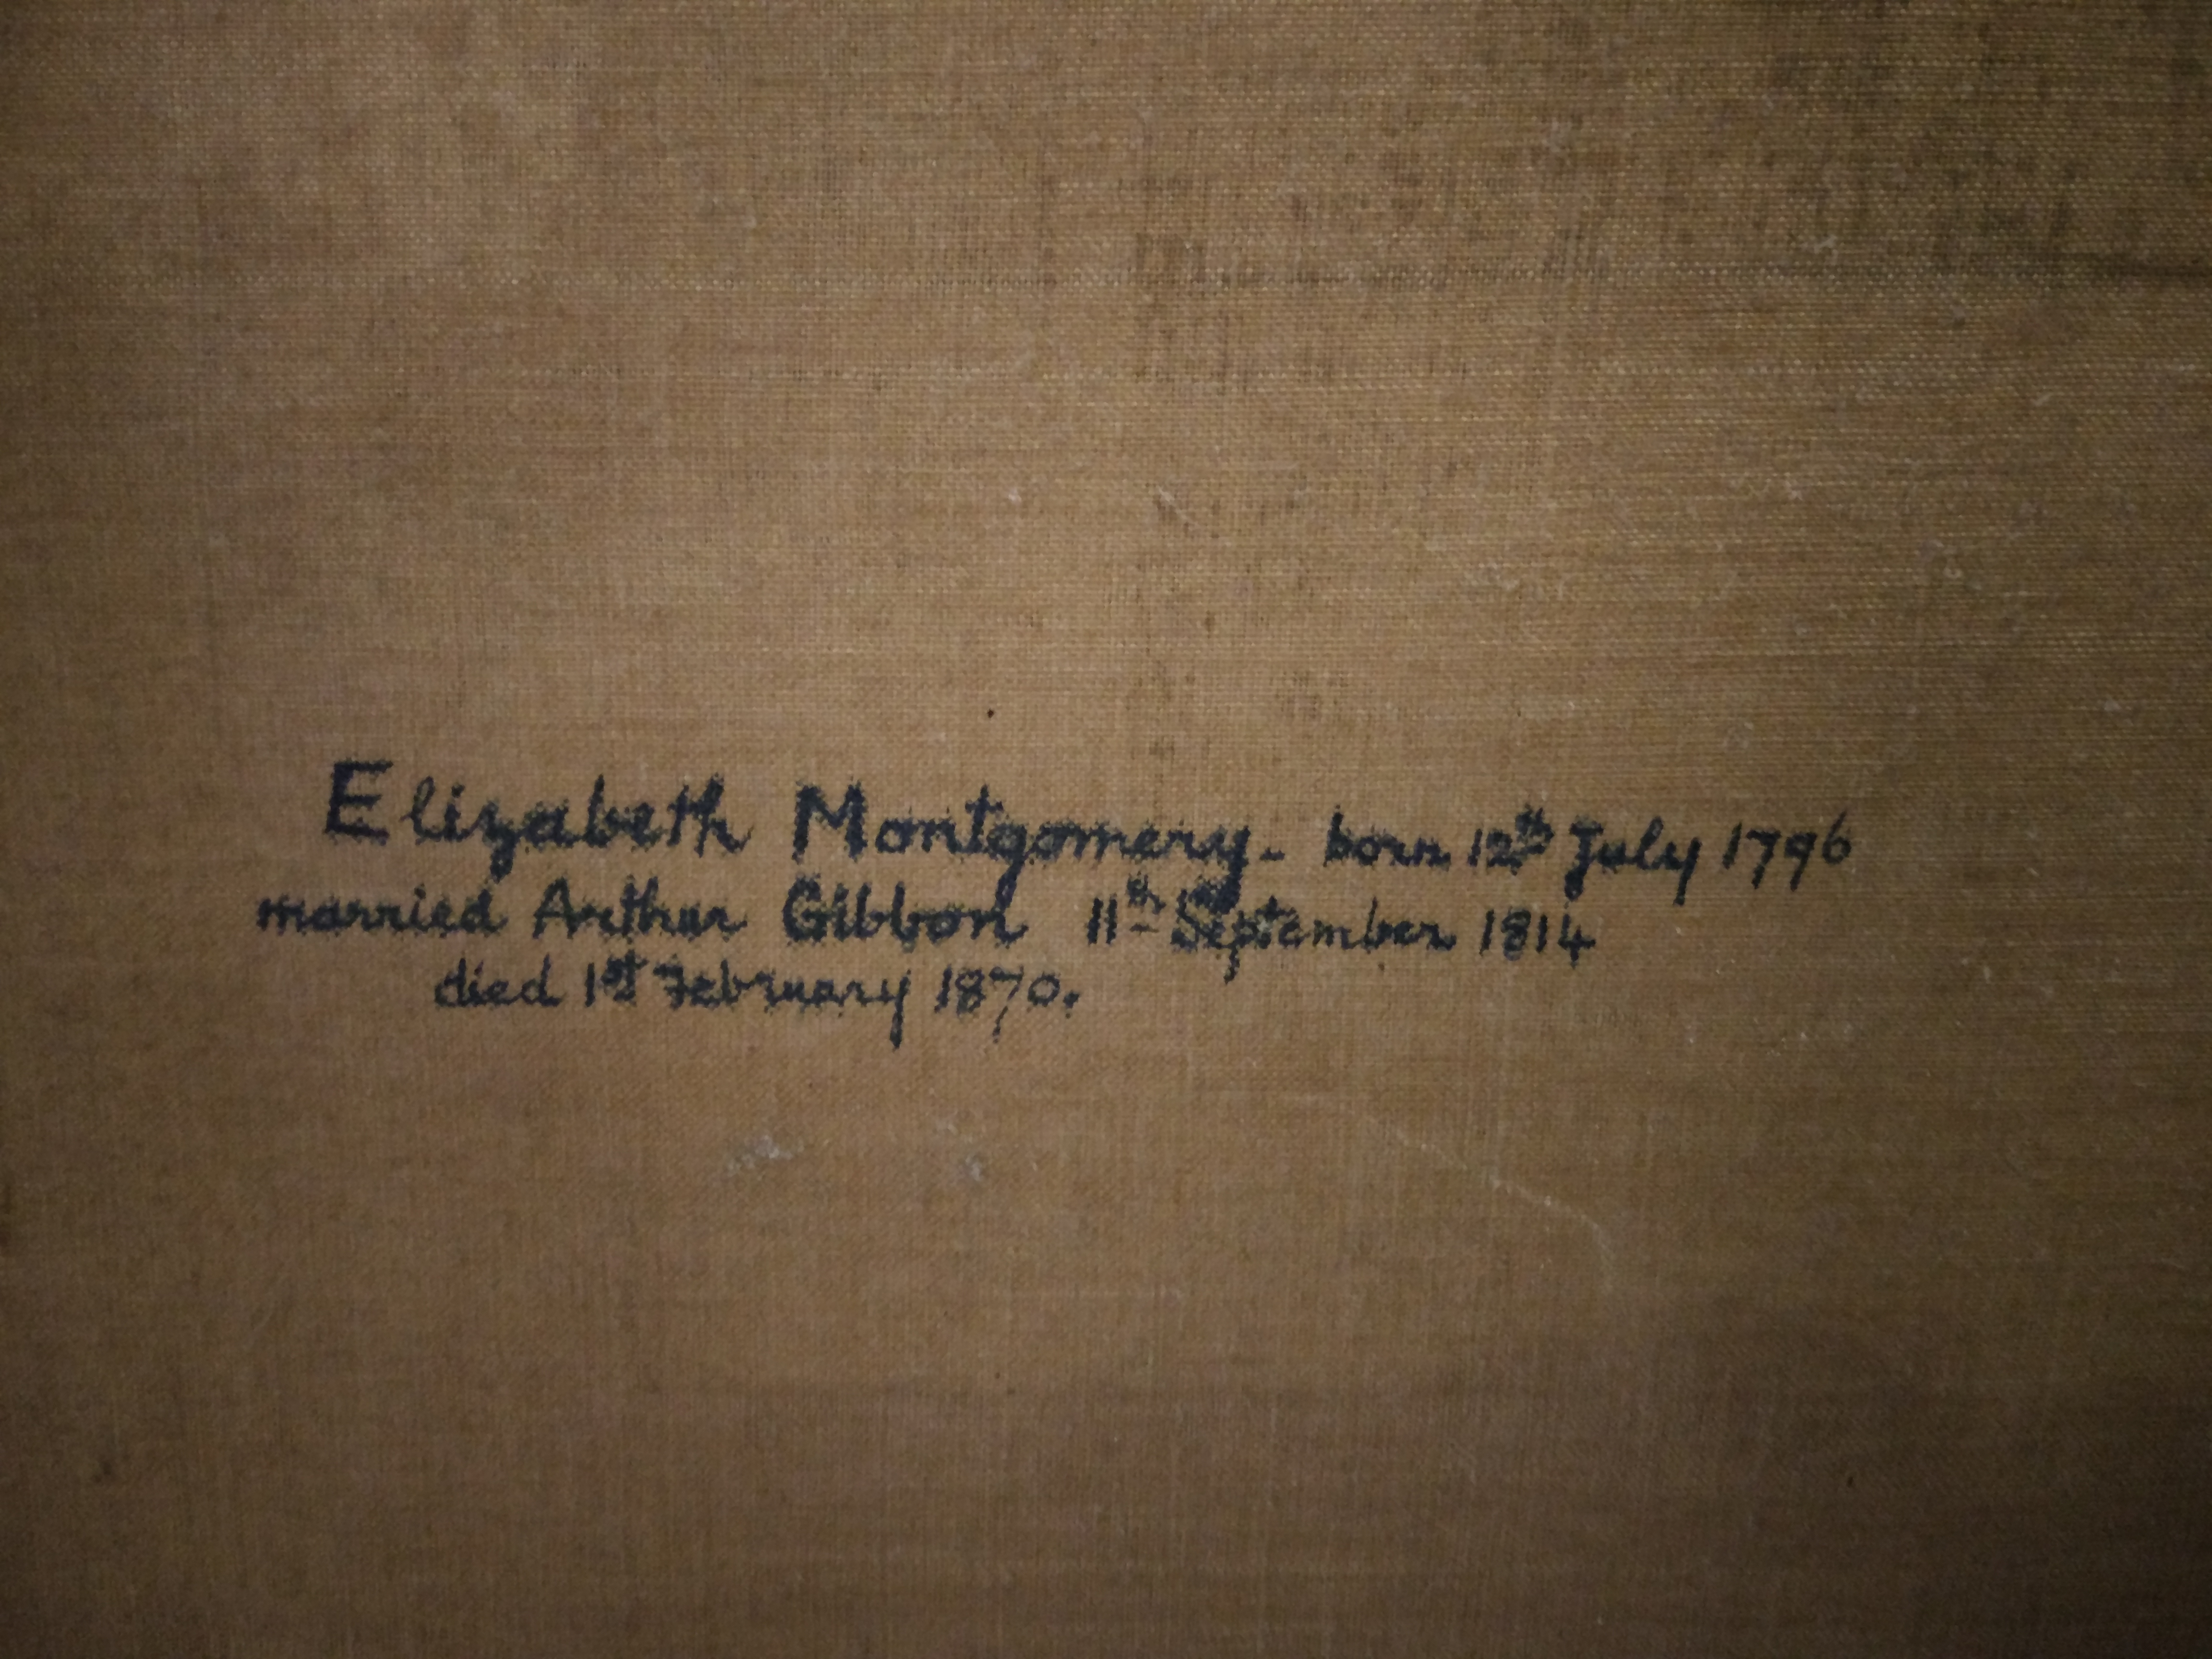 Elizabeth Montgomery - born 12th July 1796
married Arthur Gibbon 11th September 1814
died 1st February 1870.